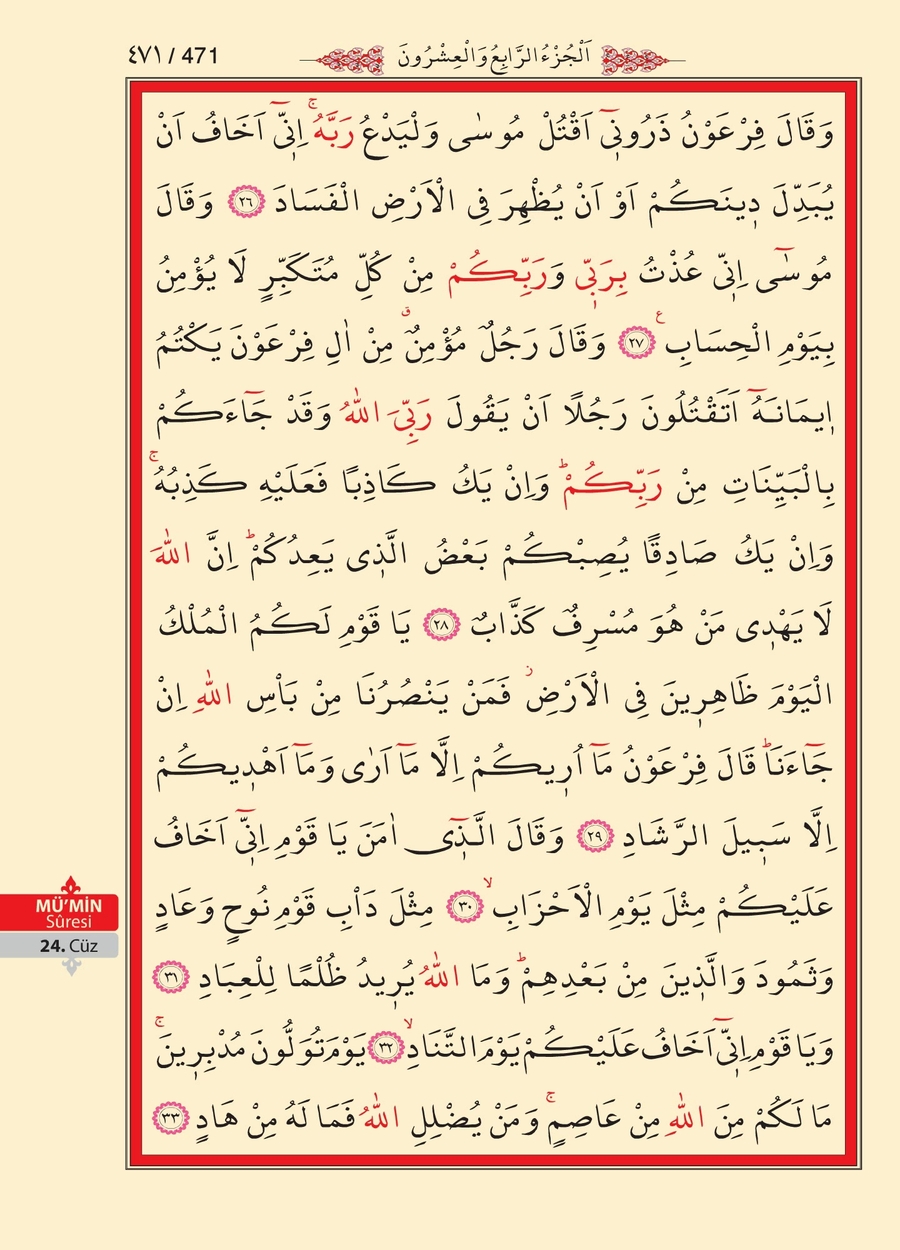 ٤٧١ / 471
اَلْجُزْءُ الرَّابِعُ وَالْعِشْرُونَ
وَقَالَ فِرْعَوْنُ ذَرُونٖٓي اَقْتُلْ مُوسٰى وَلْيَدْعُ رَبَّهُۚ اِنّٖٓي اَخَافُ اَنْ
يُبَدِّلَ دٖينَكُمْ اَوْ اَنْ يُظْهِرَ فِي الْاَرْضِ الْفَسَادَ ﴿٢٦﴾ وَقَالَ
مُوسٰٓى اِنّٖي عُذْتُ بِرَبّٖي وَرَبِّكُمْ مِنْ كُلِّ مُتَكَبِّرٍ لَا يُؤْمِنُ
بِيَوْمِ الْحِسَابِ ع ﴿٢٧﴾ وَقَالَ رَجُلٌ مُؤْمِنٌۗ مِنْ اٰلِ فِرْعَوْنَ يَكْتُمُ
اٖيمَانَهُٓ اَتَقْتُلُونَ رَجُلًا اَنْ يَقُولَ رَبِّيَ اللّٰهُ وَقَدْ جَٓاءَكُمْ
بِالْبَيِّنَاتِ مِنْ رَبِّكُمْؕ وَاِنْ يَكُ كَاذِبًا فَعَلَيْهِ كَذِبُهُۚ
وَاِنْ يَكُ صَادِقًا يُصِبْكُمْ بَعْضُ الَّذٖي يَعِدُكُمْؕ اِنَّ اللّٰهَ
لَا يَهْدٖي مَنْ هُوَ مُسْرِفٌ كَذَّابٌ ﴿٢٨﴾ يَا قَوْمِ لَكُمُ الْمُلْكُ
الْيَوْمَ ظَاهِرٖينَ فِي الْاَرْضِؗ فَمَنْ يَنْصُرُنَا مِنْ بَاْسِ اللّٰهِ اِنْ
جَٓاءَنَاؕ قَالَ فِرْعَوْنُ مَٓا اُرٖيكُمْ اِلَّا مَٓا اَرٰى وَمَٓا اَهْدٖيكُمْ
اِلَّا سَبٖيلَ الرَّشَادِ ﴿٢٩﴾ وَقَالَ الَّذٖٓي اٰمَنَ يَا قَوْمِ اِنّٖٓي اَخَافُ
عَلَيْكُمْ مِثْلَ يَوْمِ الْاَحْزَابِۙ ﴿٣٠﴾ مِثْلَ دَاْبِ قَوْمِ نُوحٍ وَعَادٍ
وَثَمُودَ وَالَّذٖينَ مِنْ بَعْدِهِمْؕ وَمَا اللّٰهُ يُرٖيدُ ظُلْمًا لِلْعِبَادِ ﴿٣١﴾
وَيَا قَوْمِ اِنّٖٓي اَخَافُ عَلَيْكُمْ يَوْمَ التَّنَادِۙ ﴿٣٢﴾ يَوْمَ تُوَلُّونَ مُدْبِرٖينَۚ
مَا لَكُمْ مِنَ اللّٰهِ مِنْ عَاصِمٍۚ وَمَنْ يُضْلِلِ اللّٰهُ فَمَا لَهُ مِنْ هَادٍ ﴿٣٣﴾
MÜ’MİN
Sûresi
24. Cüz